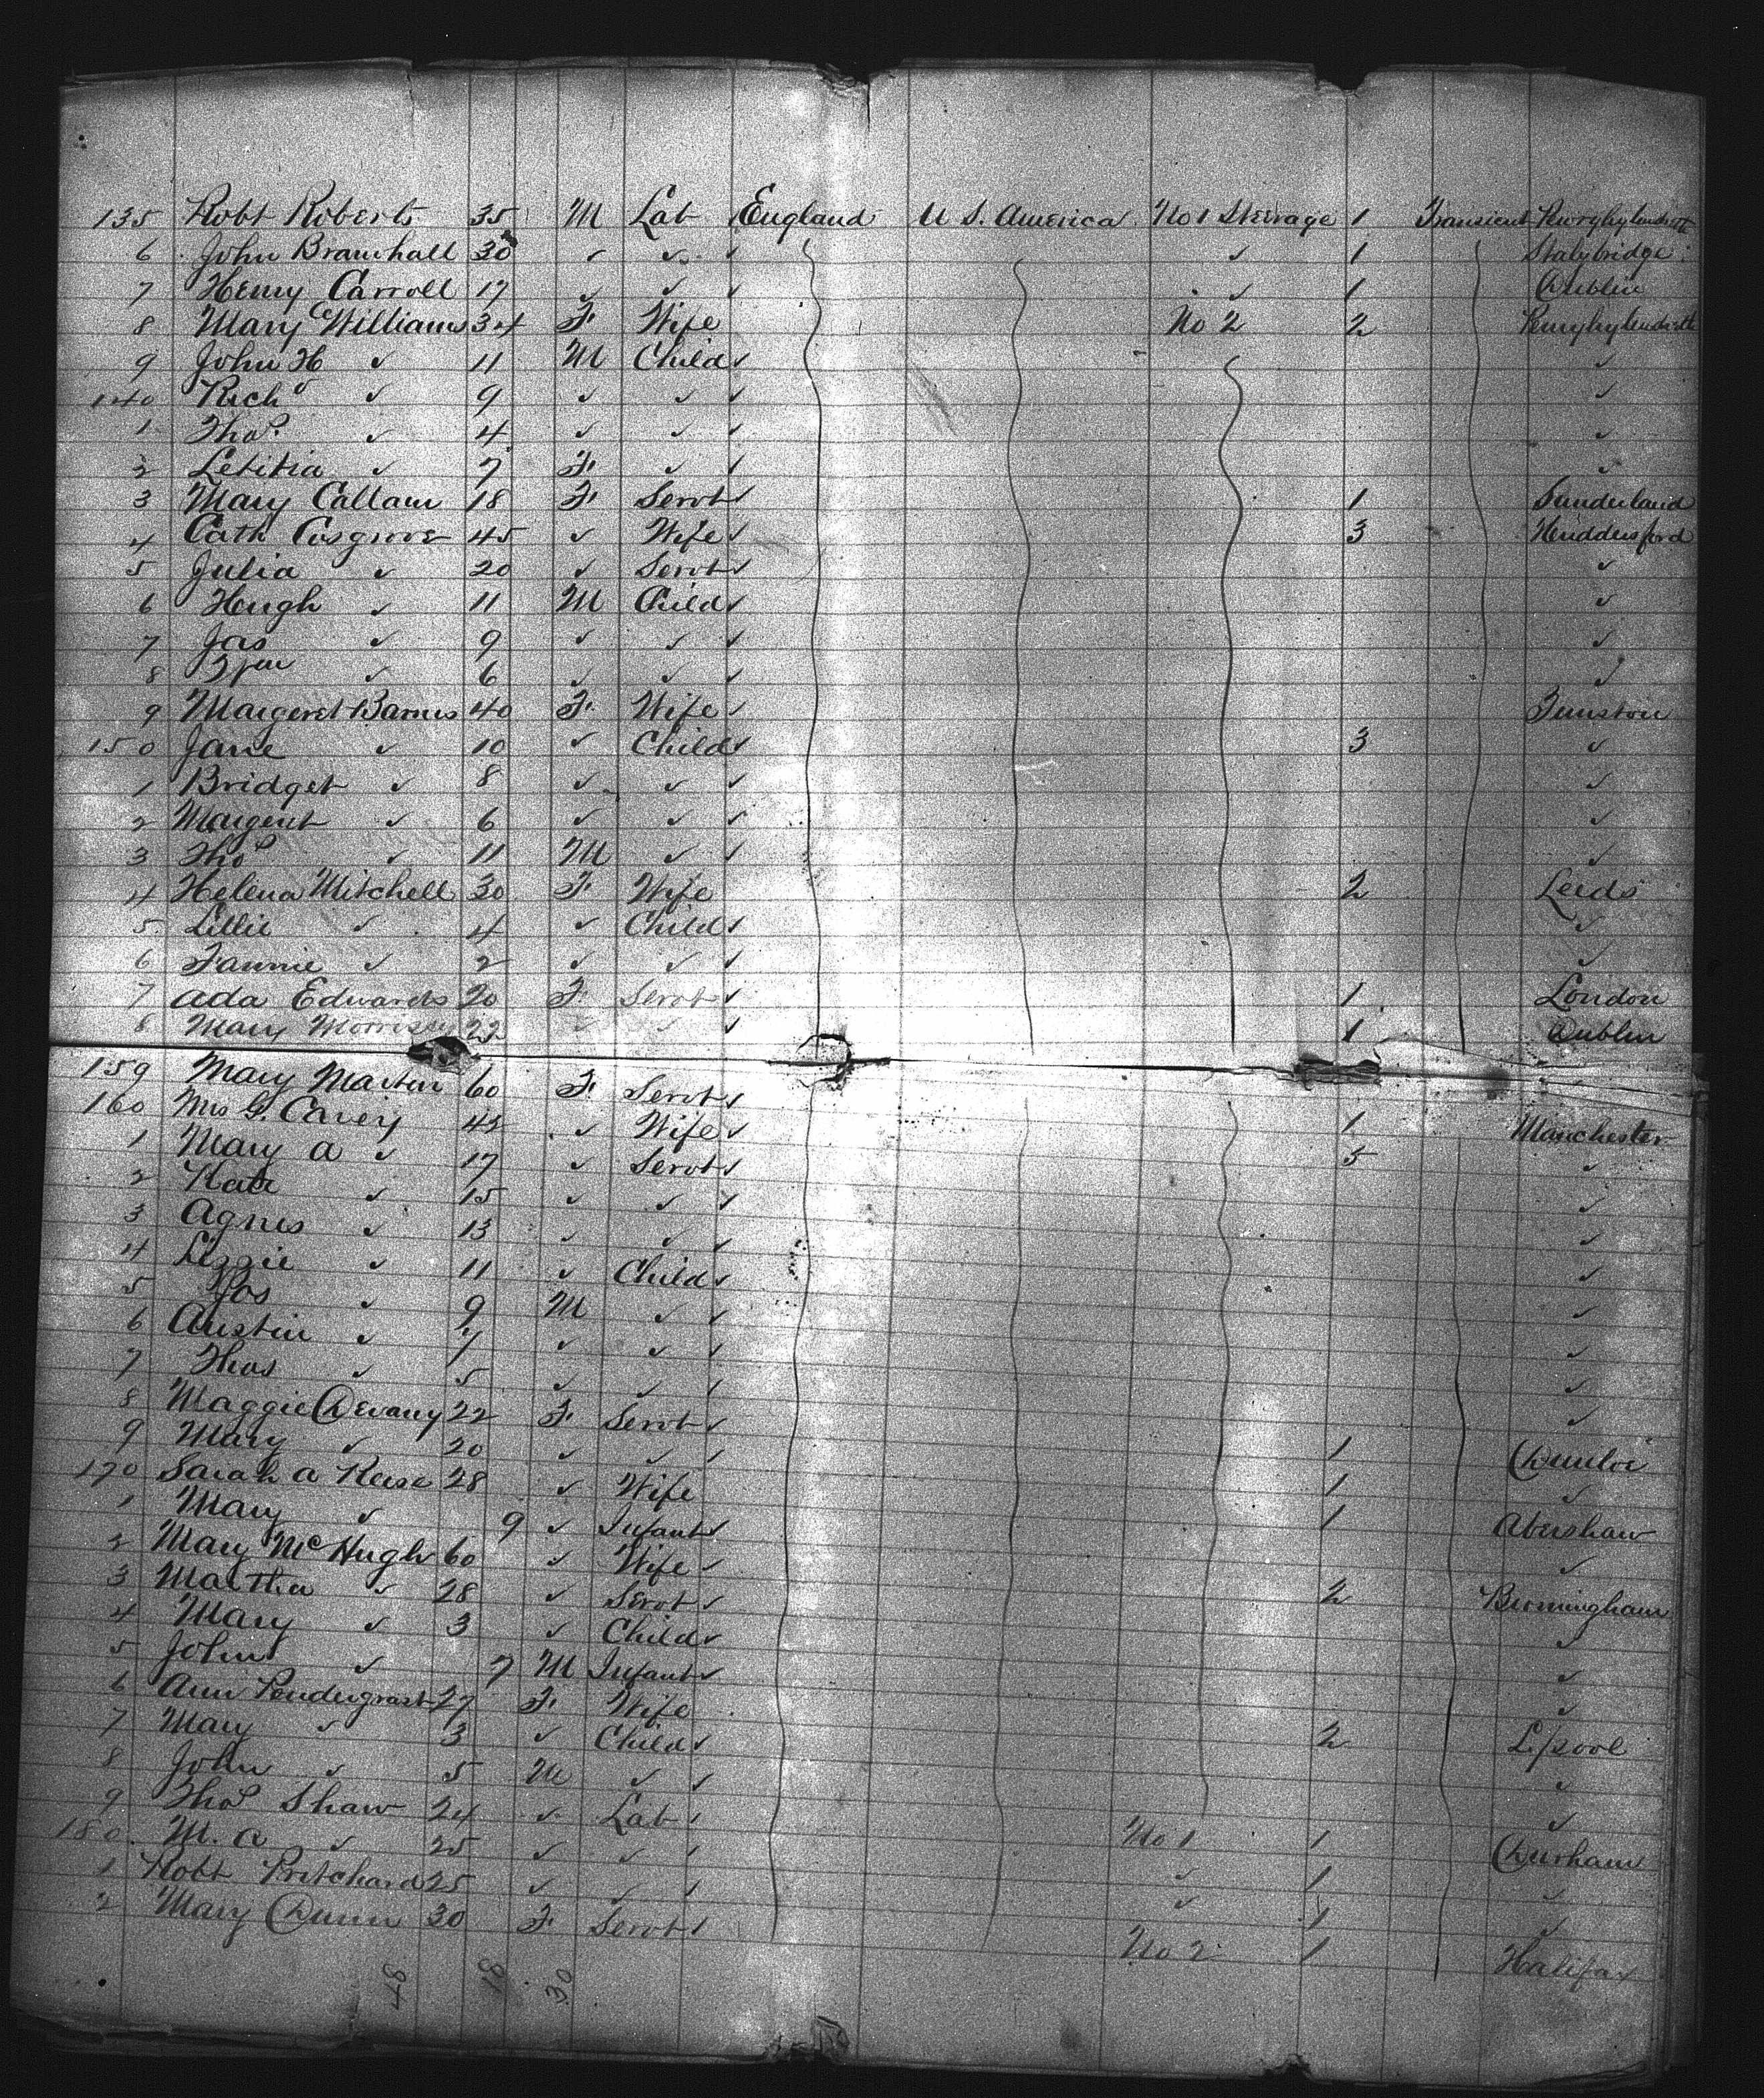 135 Robt Roberts 35 M Lab England U S. America No 1 Steerage 1 Transient
6 John Bramhall 30 ✓ ✓ ✓ ✓ 1 Stalybridge
7 Henry Carroll 17 ✓ ✓ ✓ ✓ 1 Dublin
8 Mary Williams 34 F. Wife No 2 2
9 John H ✓ 11 M Child ✓ ✓
140 Richd ✓ 9 ✓ ✓ ✓ ✓
1 Thos. ✓ 4 ✓ ✓ ✓ ✓
2 Letitia ✓ 7 F. ✓ ✓ ✓
3 Mary Callam 18 F. Servt ✓ 1 Sunderland
4 Cath Cosgrove 45 ✓ Wife ✓ 3 Huddersford
5 Julia ✓ 20 ✓ Servt ✓ ✓
6 Hugh ✓ 11 M Child ✓ ✓
7 Jas ✓ 9 ✓ ✓ ✓ ✓
8 Wm ✓ 6 ✓ ✓ ✓ ✓
9 Margeret Barnes 40 F. Wife ✓
150 Jane ✓ 10 ✓ Child ✓ 3 ✓
1 Bridget ✓ 8 ✓ ✓ ✓ ✓
2 Margeret ✓ 6 ✓ ✓ ✓ ✓
3 Thos ✓ 11 M ✓ ✓ ✓
4 Helena Mitchell 30 F. Wife 2 Leeds
5 Lillie ✓ 4 ✓ Child ✓ ✓
6 Fannie ✓ 2 ✓ ✓ ✓ ✓
7 Ada Edwards 20 F. Servt ✓ 1 London
8 Mary Morrissy 22 ✓ ✓ ✓ 1 Dublin
159 Mary Martin 60 F. Servt ✓ 1 Manchester
160 Mrs G. Cavey 43 ✓ Wife ✓ 5 ✓
1 Mary A ✓ 17 ✓ Servt ✓ ✓
2 Kate ✓ 15 ✓ ✓ ✓ ✓
3 Agnes ✓ 13 ✓ ✓ ✓ ✓
4 Lizzie ✓ 11 ✓ Child ✓ ✓
5 Jos ✓ 9 M ✓ ✓ ✓
6 Austin ✓ 7 ✓ ✓ ✓ ✓
7 Thos ✓ 5 ✓ ✓ ✓ ✓
8 Maggie Devany 22 F. Servt ✓ 1
9 Mary ✓ 20 ✓ ✓ ✓ 1 ✓
170 Sarah A Reese 28 ✓ Wife 1 Abershaw
1 Mary ✓ 9 ✓ Infant ✓ ✓
2 Mary McHugh 60 ✓ Wife ✓ 2 Birmingham
3 Martha ✓ 28 ✓ Servt ✓ ✓
4 Mary ✓ 3 ✓ Child ✓ ✓
5 John ✓ 7 M Infant ✓ ✓
6 Ann Pendergrast 27 F. Wife 2 L.pool
7 Mary ✓ 3 ✓ Child ✓ ✓
8 John ✓ 5 M ✓ ✓ ✓
9 Thos Shaw 24 ✓ Lab ✓ No 1 1 Durham
180 M. A ✓ 25 ✓ ✓ ✓ ✓ 1 ✓
1 Robt Pritchard 25 ✓ ✓ ✓ ✓ 1 ✓
2 Mary Dunn 30 F. Servt ✓ No 2 1 Halifax
48 18 30